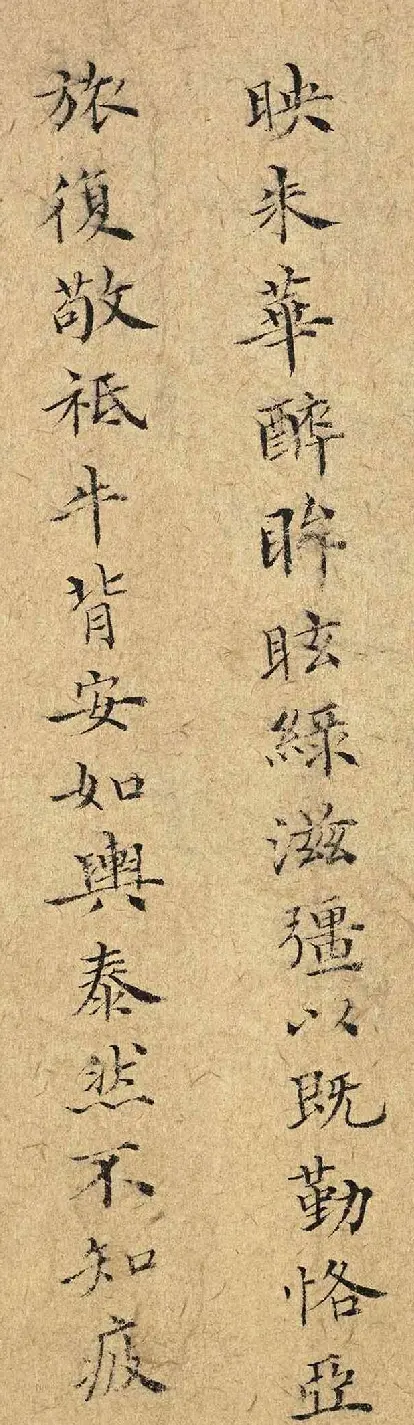 映来華醉眸眩綠滋彊以既勤恪亞
旅復敬祗牛背安如輿泰然不知疲